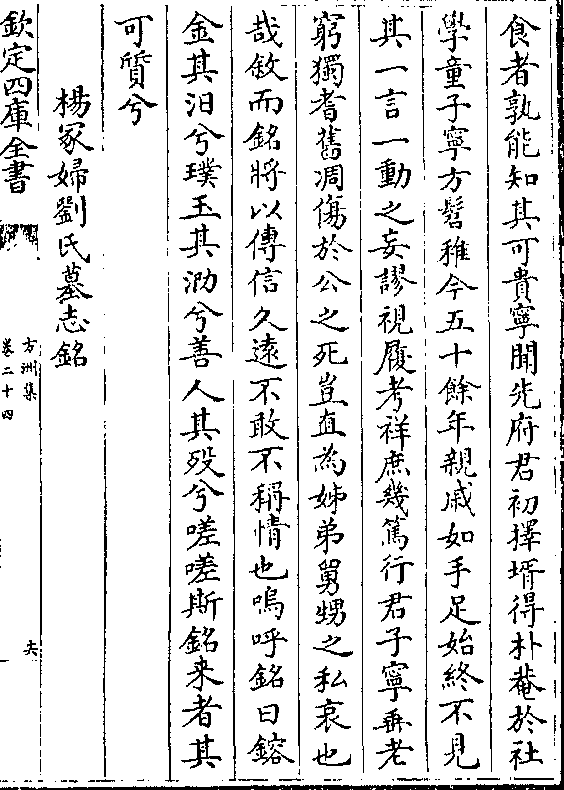 食者孰能知其可貴寧聞先府君初擇壻得朴菴於社
學童子寧方髫稚今五十餘年親戚如手足始終不見
其一言一動之妄謬視履考祥庶幾篤行君子寧垂老
窮獨耆舊凋傷於公之死豈直為姊弟舅甥之私哀也
哉敘而銘將以傳信久遠不敢不稱情也嗚呼銘曰鎔
金其汨兮璞玉其泐兮善人其殁兮嗟嗟斯銘来者其
可質兮
楊冢婦劉氏墓志銘
欽定四庫全書
方洲集
卷二十四